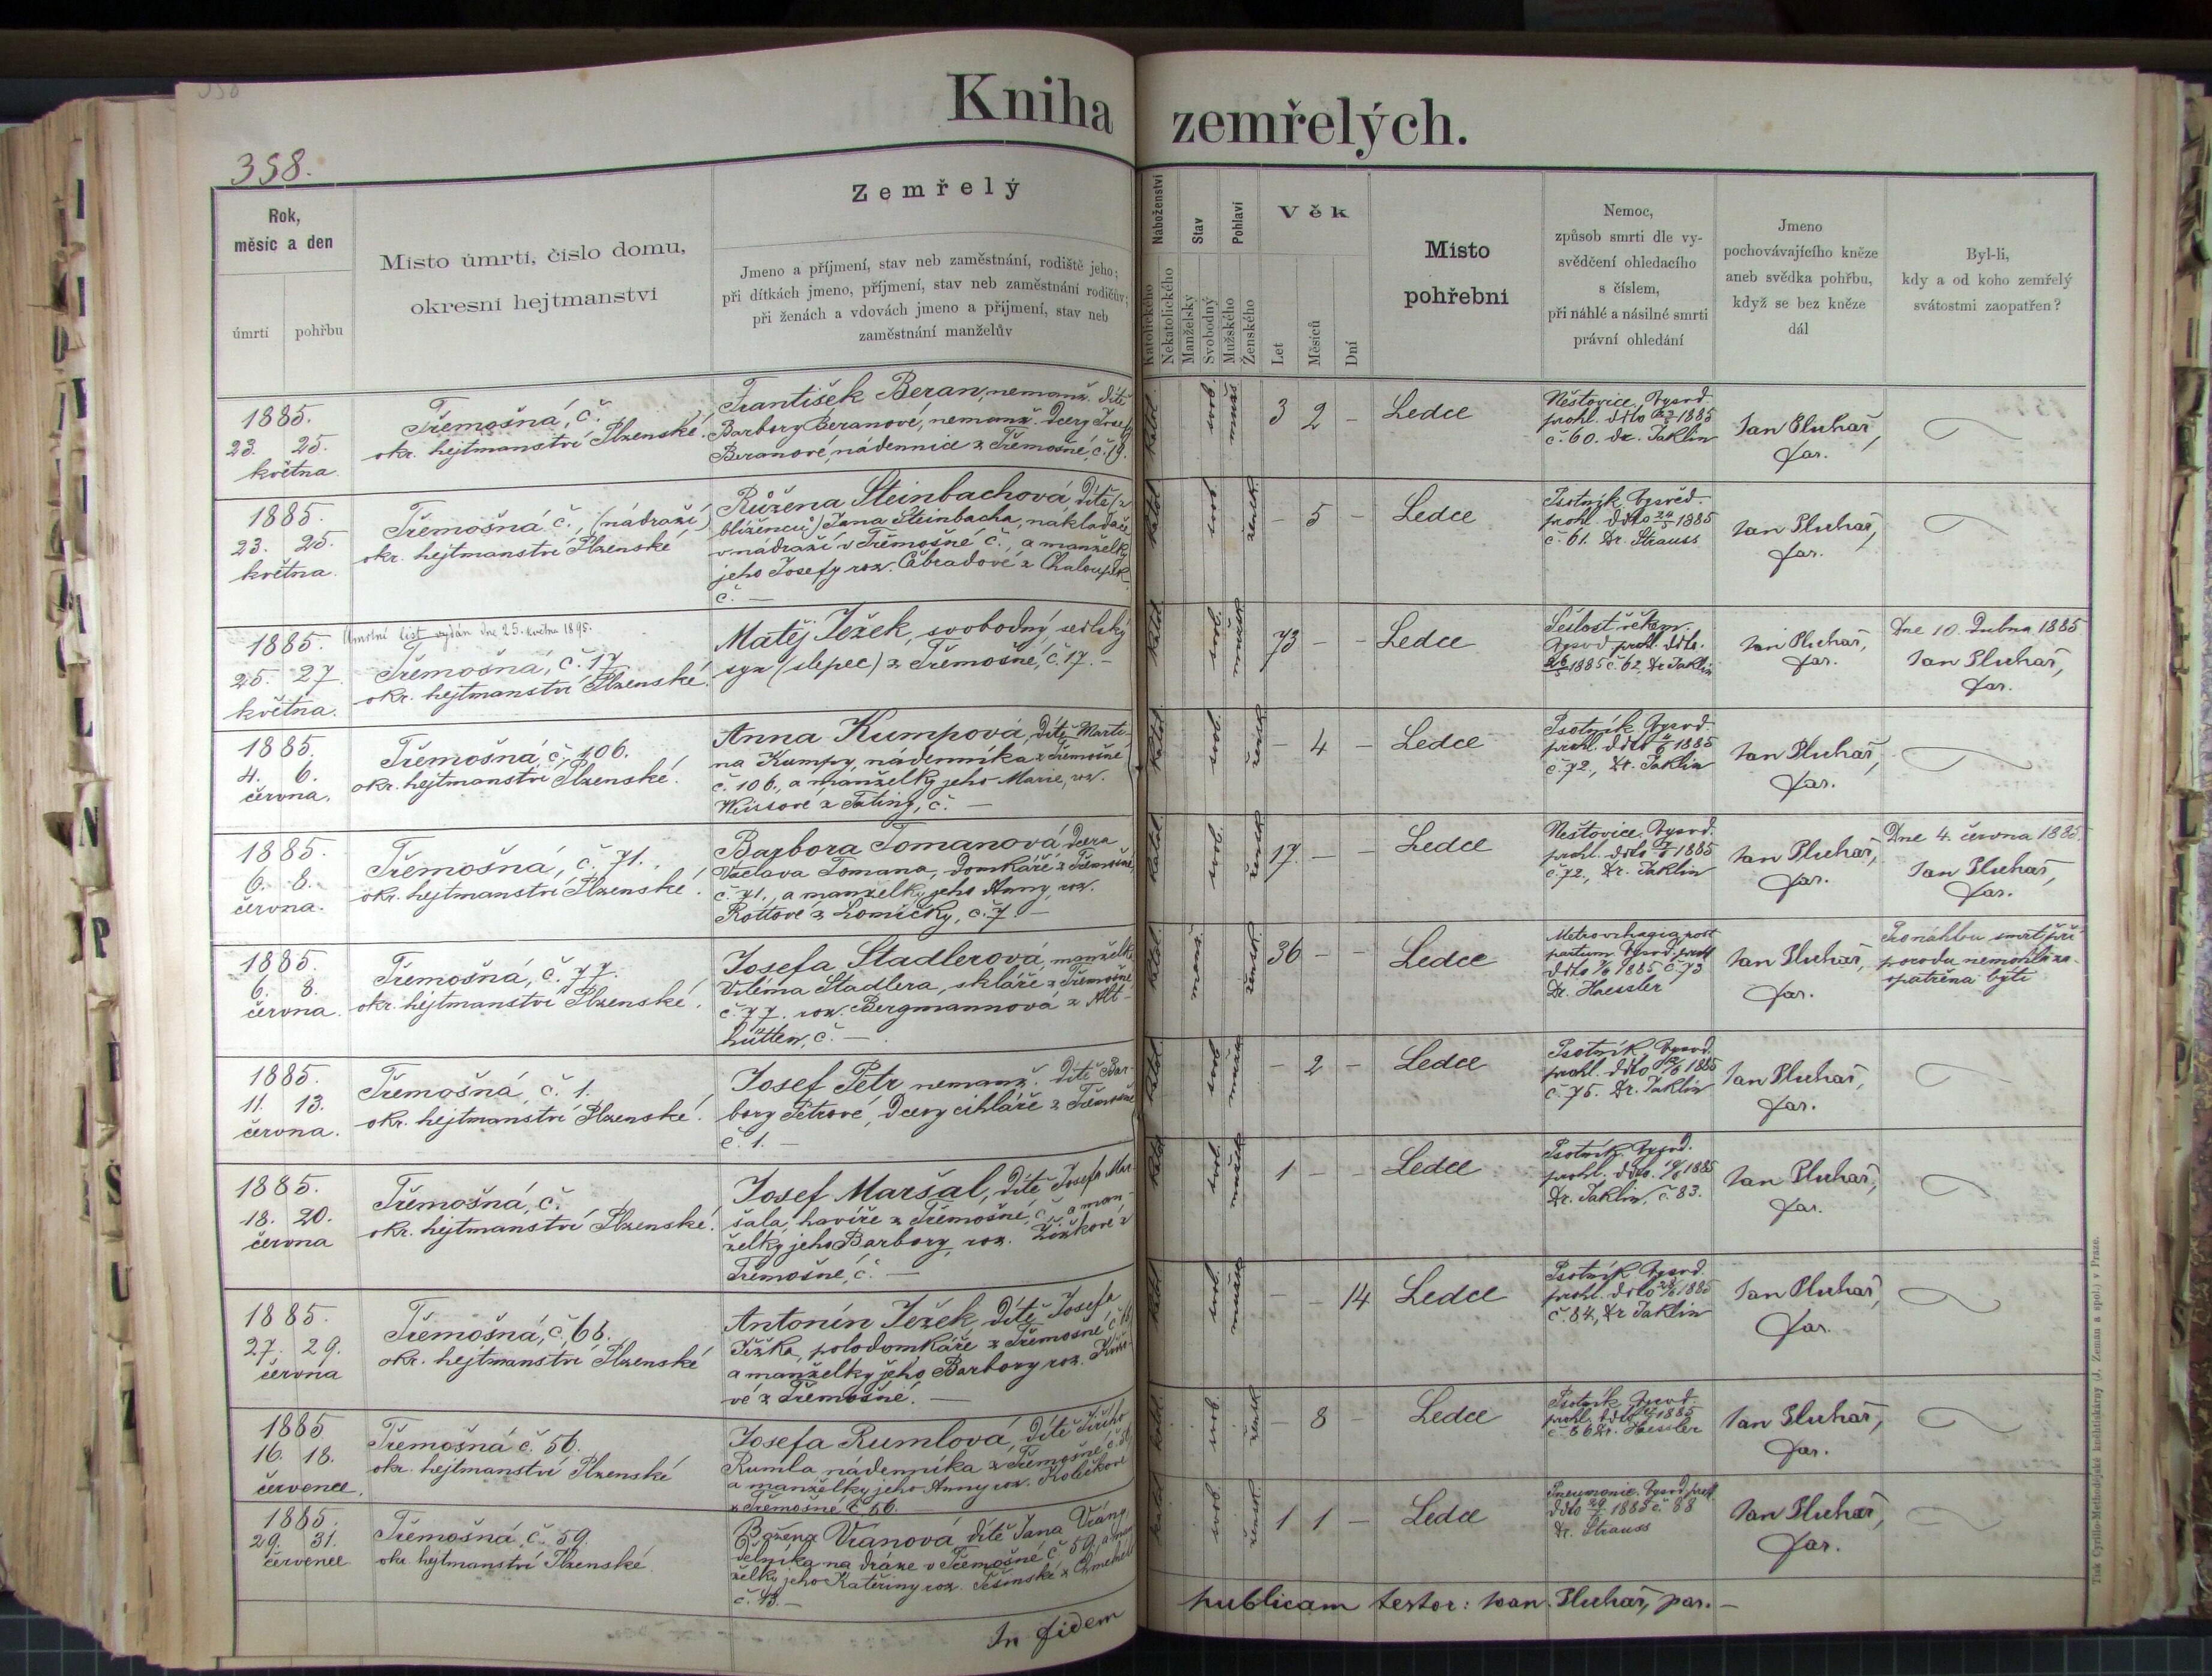 Kniha zemřelých.
358.
Rok,
měsíc a den
úmrtí
pohřbu
Místo úmrtí, číslo domu,
okresní hejtmanství
Zemřelý
Jmeno a příjmení, stav neb zaměstnání, rodiště jeho;
při dítkách jmeno, příjmení, stav neb zaměstnání rodičův;
při ženách a vdovách jmeno a příjmení, stav neb
zaměstnání manželův
Náboženství
Katolického
Nekatolického
Stav
Manželský
Svobodný
Pohlaví
Mužského
Ženského
Věk
Let
Měsíců
Dní
Místo
pohřební
Nemoc,
způsob smrti dle vy-
svědčení ohledacího
s číslem,
při náhlé a násilné smrti
právní ohledání
Jmeno
pochovávajícího kněze
aneb svědka pohřbu,
když se bez kněze
dál
Byl-li,
kdy a od koho zemřelý
svátostmi zaopatřen?
1885.
23. 25.
května
Třemošná, č.
okr. hejtmanství Plzenské.
František Beran, nemanž. dítě
Barbory Beranové, nemanž. dcery Josefy
Beranové, nádennice z Třemošné, č. 19.
katol. svob. mužs.
3 2 –
Ledce
Neštovice. Vysvd.
prohl. ddto 1885
č. 60. dr. Taklin
Jan Pluhař,
far.
1885.
23. 25.
května.
Třemošná č., (nádraží)
okr. hejtmanství Plzenské
Růžena Steinbachová, dítě (z
blíženců) Jana Steinbacha, nakladače
v nádraží v Třemošné č., a manželky
jeho Josefy roz. Čábradové z Chaloupek
č. —
katol. svob. žensk.
– 5 –
Ledce
Psotník. Vysvěd.
prohl. ddto 24/5 1885
č. 61. Dr. Strauss
Jan Pluhař,
far.
Úmrtní list vydán dne 25. května 1895.
1885.
25. 27.
května.
Třemošná, č. 17
okr. hejtmanství Plzenské.
Matěj Ježek, svobodný, selský
syn (slepec) z Třemošné, č. 17. –
katol. svob. mužsk.
73 – –
Ledce
Sešlost věkem.
Vysvd prohl. ddto.
26/5 1885 č. 62, Dr Taklin
Jan Pluhař,
far.
Dne 10. Dubna 1885
Jan Pluhař,
far.
1885.
4. 6.
června.
Třemošná, č. 106.
okr. hejtmanství Plzenské.
Anna Kumpová, dítě Marti-
na Kumpy, nádenníka z Třemošné
č. 106., a manželky jeho Marie, roz.
č. —
katol. svob. žensk.
– 4 –
Ledce
Psotník. Vysvd.
prohl. ddto 1885
č. 72., Dr. Taklin
Jan Pluhař,
far.
1885.
6. 8.
června.
Třemošná, č. 71.
okr. hejtmanství Plzenské.
Barbora Tomanová, dcera
Václava Tomana, domkáře z Třemošné,
č. 71., a manželky jeho Anny, roz.
Rottové z Lomičky, č. 7 —
katol. svob. žensk.
17. – –
Ledce
Neštovice. Vysvd.
prohl. ddto 1885
č. 72., Dr. Taklin
Jan Pluhař,
far.
Dne 4. června 1885.
Jan Pluhař,
far.
1885.
6. 8.
června.
Třemošná, č. 77.
okr. hejtmanství Plzenské.
Josefa Stadlerová, manželka
Viléma Stadlera, skláře z Třemošné,
č. 77. roz. Bergmannová z Alt-
hütten, č. —
katol. manž. žensk.
36 – –
Ledce
Metrorrhagia post
partum. Vysvd. prohl
ddto 1885 č. 73
Dr. Haessler
Jan Pluhař,
far.
Pro náhlou smrt při
porodu nemohla za-
opatřena býti
1885.
11. 13.
června.
Třemošná, č. 1.
okr. hejtmanství Plzenské.
Josef Petr, nemanž. dítě Bar-
bory Petrové, dcery cihláře z Třemošné
č. 1. —
katol. svob. mužsk.
– 2 –
Ledce
Psotník. Vysvd.
prohl. ddto 1885
č. 75. Dr. Taklin
Jan Pluhař,
far.
1885.
18. 20.
června
Třemošná, č.
okr. hejtmanství Plzenské.
Josef Maršal, dítě Josefa Mar-
šala, havíře z Třemošné, č., a man-
želky jeho Barbory, roz. Žižkové z
Třemošné, č. —
katol. svob. mužsk.
1 – –
Ledce
Psotník. Vysvd.
prohl. ddto. 1885
Dr. Taklin, č. 83.
Jan Pluhař,
far.
1885.
27. 29.
června
Třemošná, č. 68.
okr. hejtmanství Plzenské
Antonín Ježek, dítě Josefa
Ježka, polodomkáře z Třemošné č.
a manželky jeho Barbory roz.
vé z Třemošné. —
katol. svob. mužsk.
– – 14
Ledce
Psotník. Vysvd.
prohl. ddto 1885
č. 84, Dr Taklin
Jan Pluhař,
far.
1885
16. 18.
července.
Třemošná č. 56.
okr. hejtmanství Plzenské
Josefa Rumlová, dítě Jiřího
Rumla nádenníka z Třemošné č. 56
a manželky jeho Anny roz. Količkové
z Třemošné č. 56.
katol. svob. žensk.
– 8 –
Ledce
Psotník. Vysvd.
prohl. ddto 1885
č. 86 Dr. Haessler
Jan Pluhař,
far.
1885.
29. 31.
července
Třemošná č. 59.
okr. hejtmanství Plzenské.
Božena Vranová, dítě Jana Vrány,
dělníka na dráze v Třemošné č. 59, a man-
želky jeho Kateřiny roz. Těšínské z
č. 43. —
katol. svob. žensk.
1 1 –
Ledce
Pneumonie. Vysvd. prohl.
ddto 29/7 1885 č. 88
Dr. Strauss
Jan Pluhař,
far.
In fidem publicam testor: Joan. Pluhař, par. —
Tisk Cyrillo-Methodějské knihtiskárny (J. Zeman a spol.) v Praze.